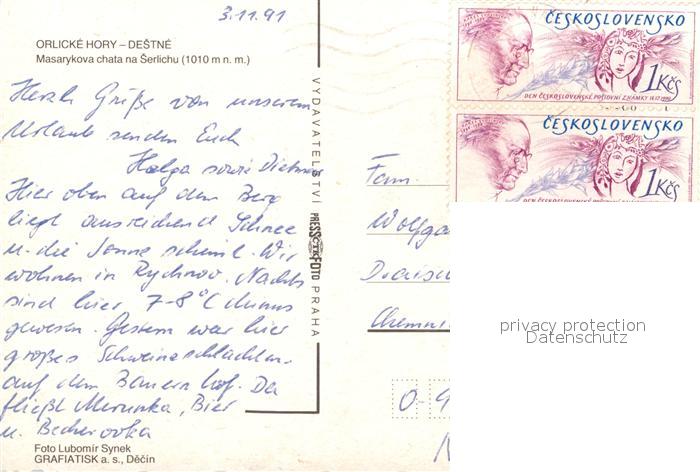 3.11.91
ORLICKÉ HORY – DEŠTNÉ
Masarykova chata na Šerlichu (1010 m n. m.)
Herzl. Grüße von unserem
Urlaub senden Euch
Helga sowie Dietmar
Hier oben auf dem Berg
liegt ausreichend Schnee
u. die Sonne scheint. Wir
wohnen in Rychnov. Nachts
sind hier 7-8°C minus
gewesen. Gestern war hier
großes Schweineschlachten
auf dem Bauernhof. Da
fließt Meruňka, Bier
u. Becherovka
Foto Lubomír Synek
GRAFIATISK a. s., Děčín
VYDAVATELSTVÍ PRESSFOTO PRAHA
ČTK
ČESKOSLOVENSKO
1 Kčs
DEN ČESKOSLOVENSKÉ POŠTOVNÍ ZNÁMKY 18.12.1990
ČESKOSLOVENSKO
1 Kčs
Fam.
Wolfga
Chemni
0-9
privacy protection
Datenschutz